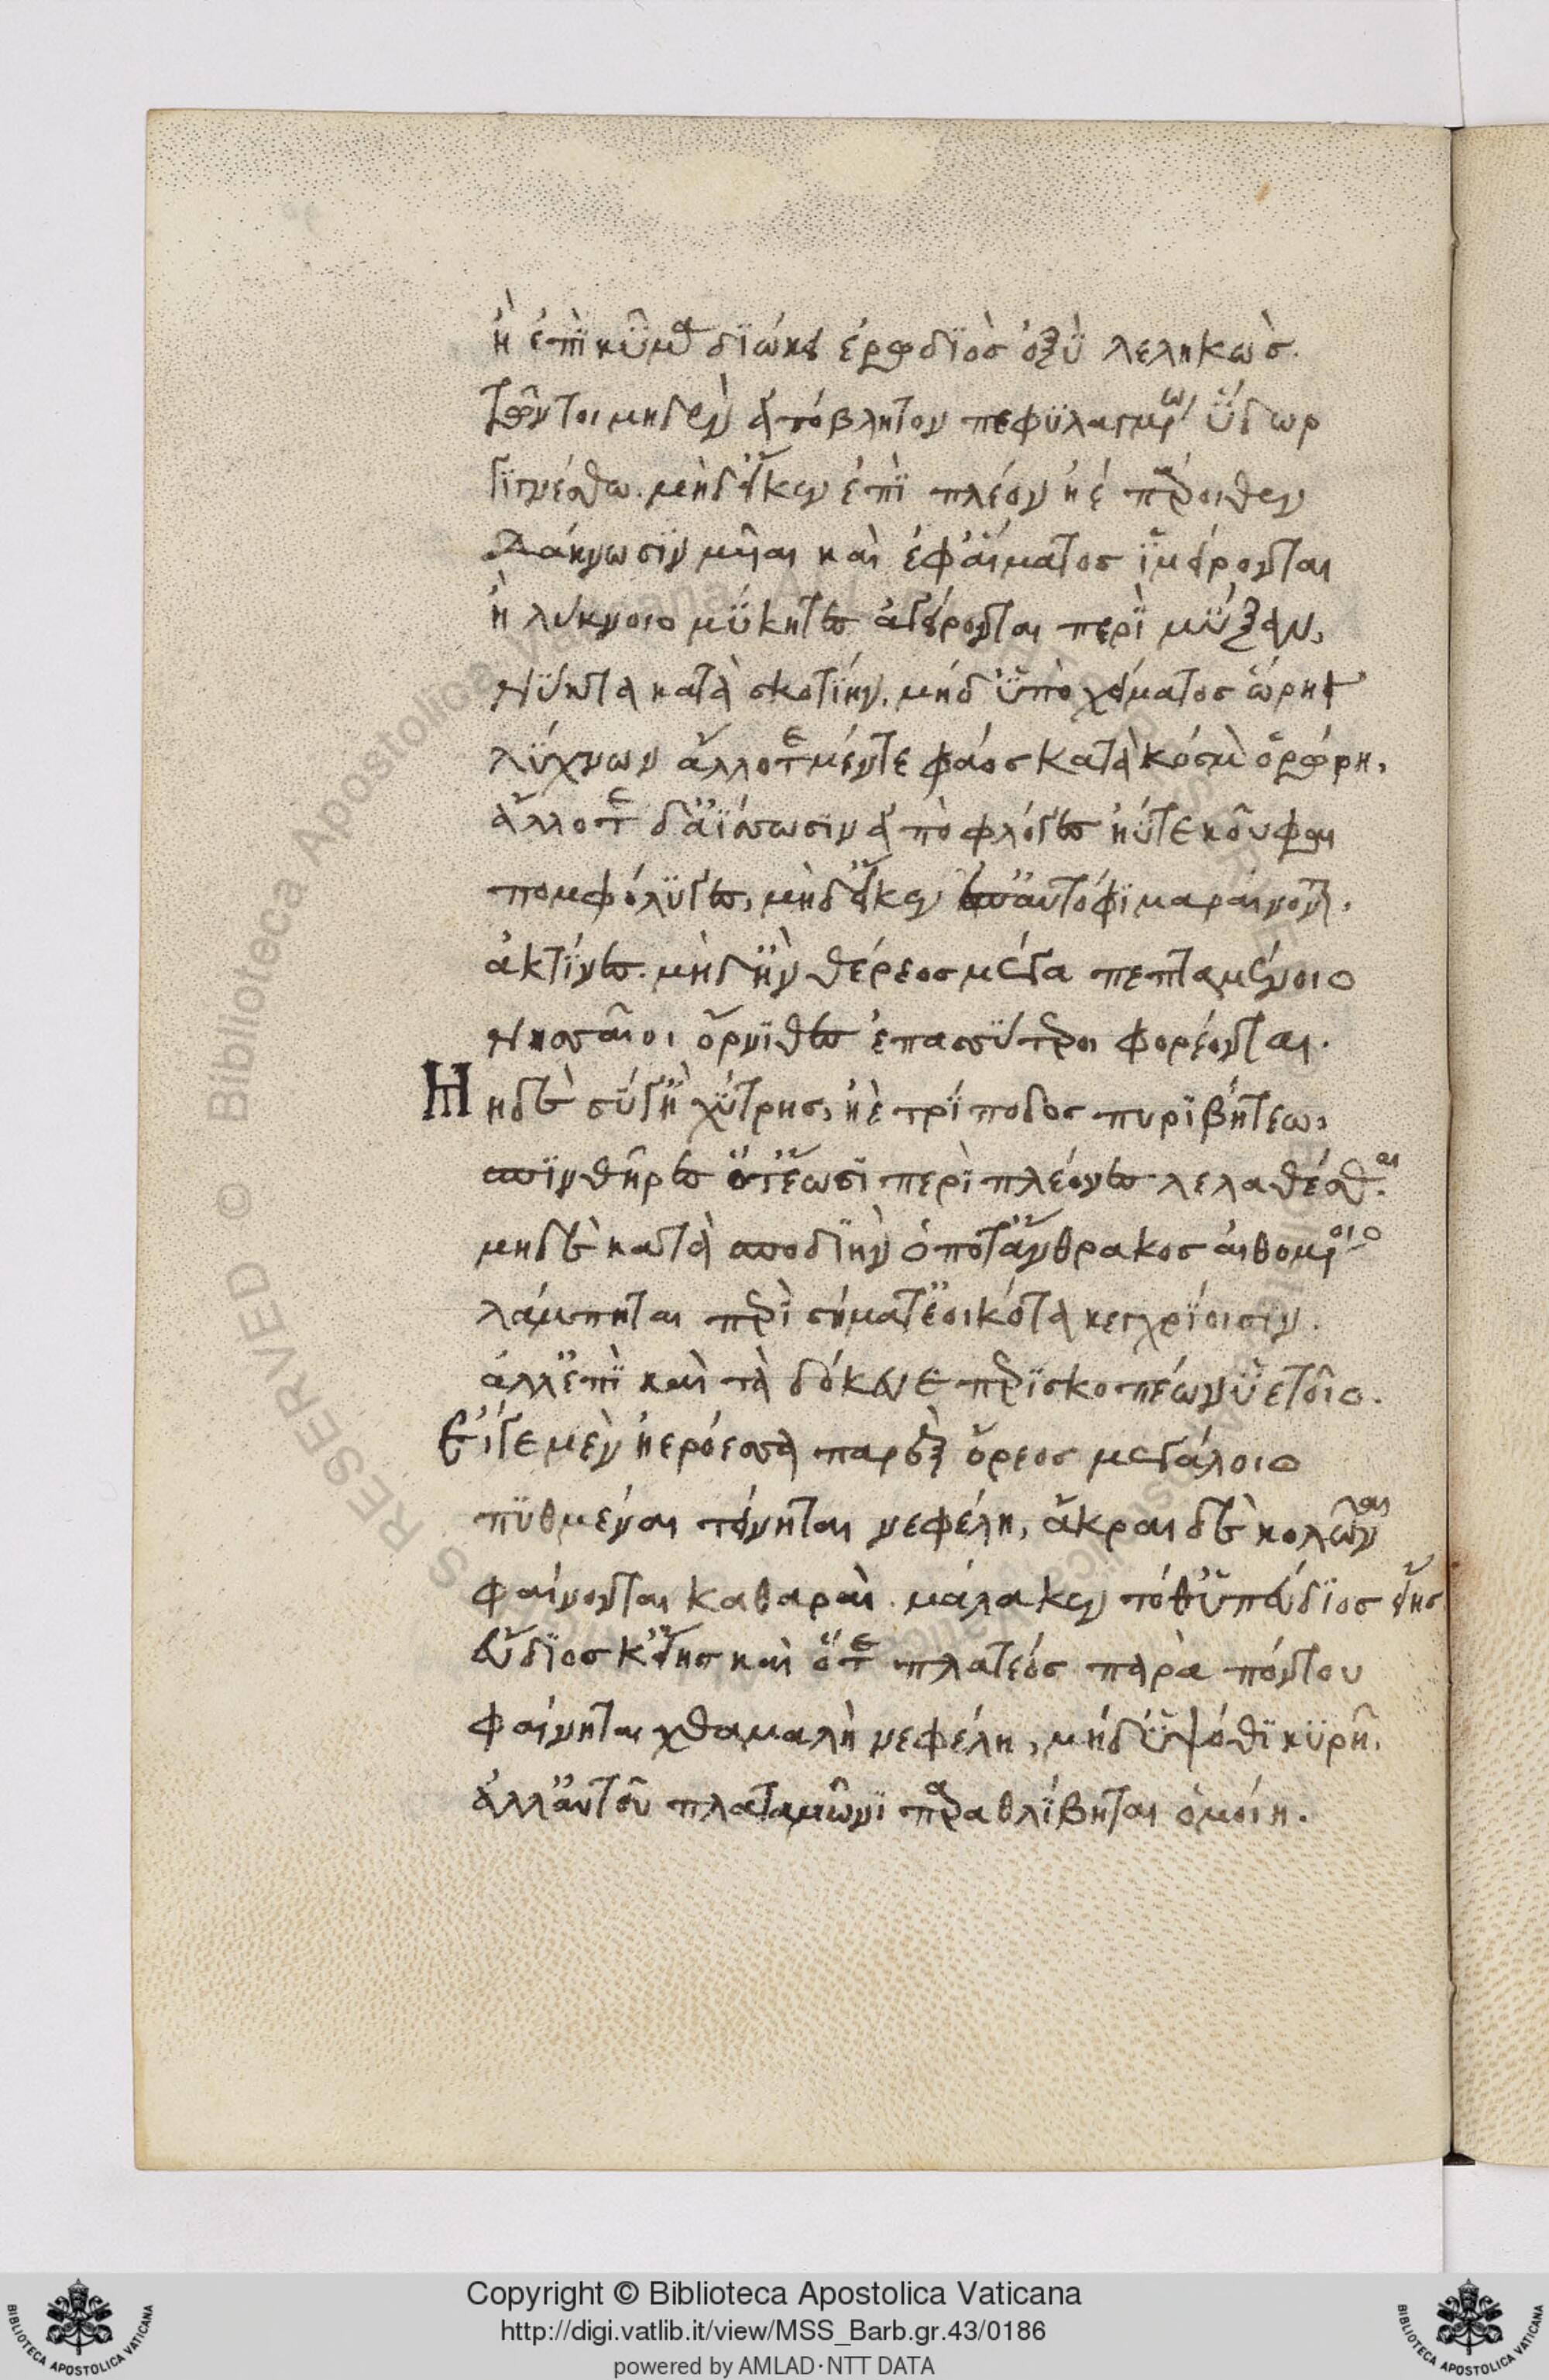 ἢ ἐπὶ κῦμα διώκει ἐρωδϊὸς ὀξὺ λεληκώς.
τῶν τοι μηδὲν ἀπόβλητον πεφϋλαγμένω ὕδωρ
γϊνέσθω. μὴδ' εἴκεν ἐπὶ πλέον ἠέ πάροιθεν
δάκνωσϊν μῆαι καὶ ἐφ' αἵματος ϊμείρονται
ἢ λύκνοιο μύκητες ἀγείρονται περὶ μύξαν,
νύκτα κατὰ σκοτίην. μήδ' ὑπὸ χείματος ὥρηι
λύχνων ἄλλοτε μέντε φάος κατὰ κόσμὸν ὀρώρη,
ἄλλοτε δ' ἀΐσσωσϊν ἀπὸ φλόγες ἠΰτε κοῦφαι
πομφόλϋγες, μὴδ' εἴκεν ἐσ' αὐτόφϊ μαραίνονται,
ἀκτῖνες. μὴδ' ἢν θέρεος μέγα πεπταμένοιο
νησσαῖοι ὄρνϊθες ἐπασσύτεροι φορέονται.
Μηδὲ σύ γ' ἢ χύτρης, ἠὲ τρίποδος πυρϊβήτεω,
σπϊνθῆρες ὅτ' ἔωσϊ περὶ πλέονες λελαθέσθαι.
μηδὲ κατὰ σποδϊὴν ὁπότ' ἄνθρακος αἰθομένοιο
λάμπηται περὶ σήματ' ἐοικότα κεγχρίοισϊν.
ἀλλ' ἐπὶ καὶ τὰ δόκευε περϊσκοπέων ὑετοῖο.
Εἴγε μὲν ἠερόεσσα παρὲξ ὄρεος μεγάλοιο
πϋθμέναι τείνηται νεφέλη, ἄκραι δὲ κολῶναι
φαίνονται καθαραὶ. μάλα κεν τόθ' ὑπεύδϊος εἴης
εὔδϊος κ' εἴης καὶ ὅτε πλατέος παρὰ πόντου
φαίνηται χθαμαλὴ νεφέλη, μήδ' ὑψόθϊ κϋρῆ,
ἀλλ' αὐτοῦ πλαταμῶνϊ παραθλίβηται ὁμοίη.
Copyright © Biblioteca Apostolica Vaticana
http://digi.vatlib.it/view/MSS_Barb.gr.43/0186
powered by AMLAD·NTT DATA